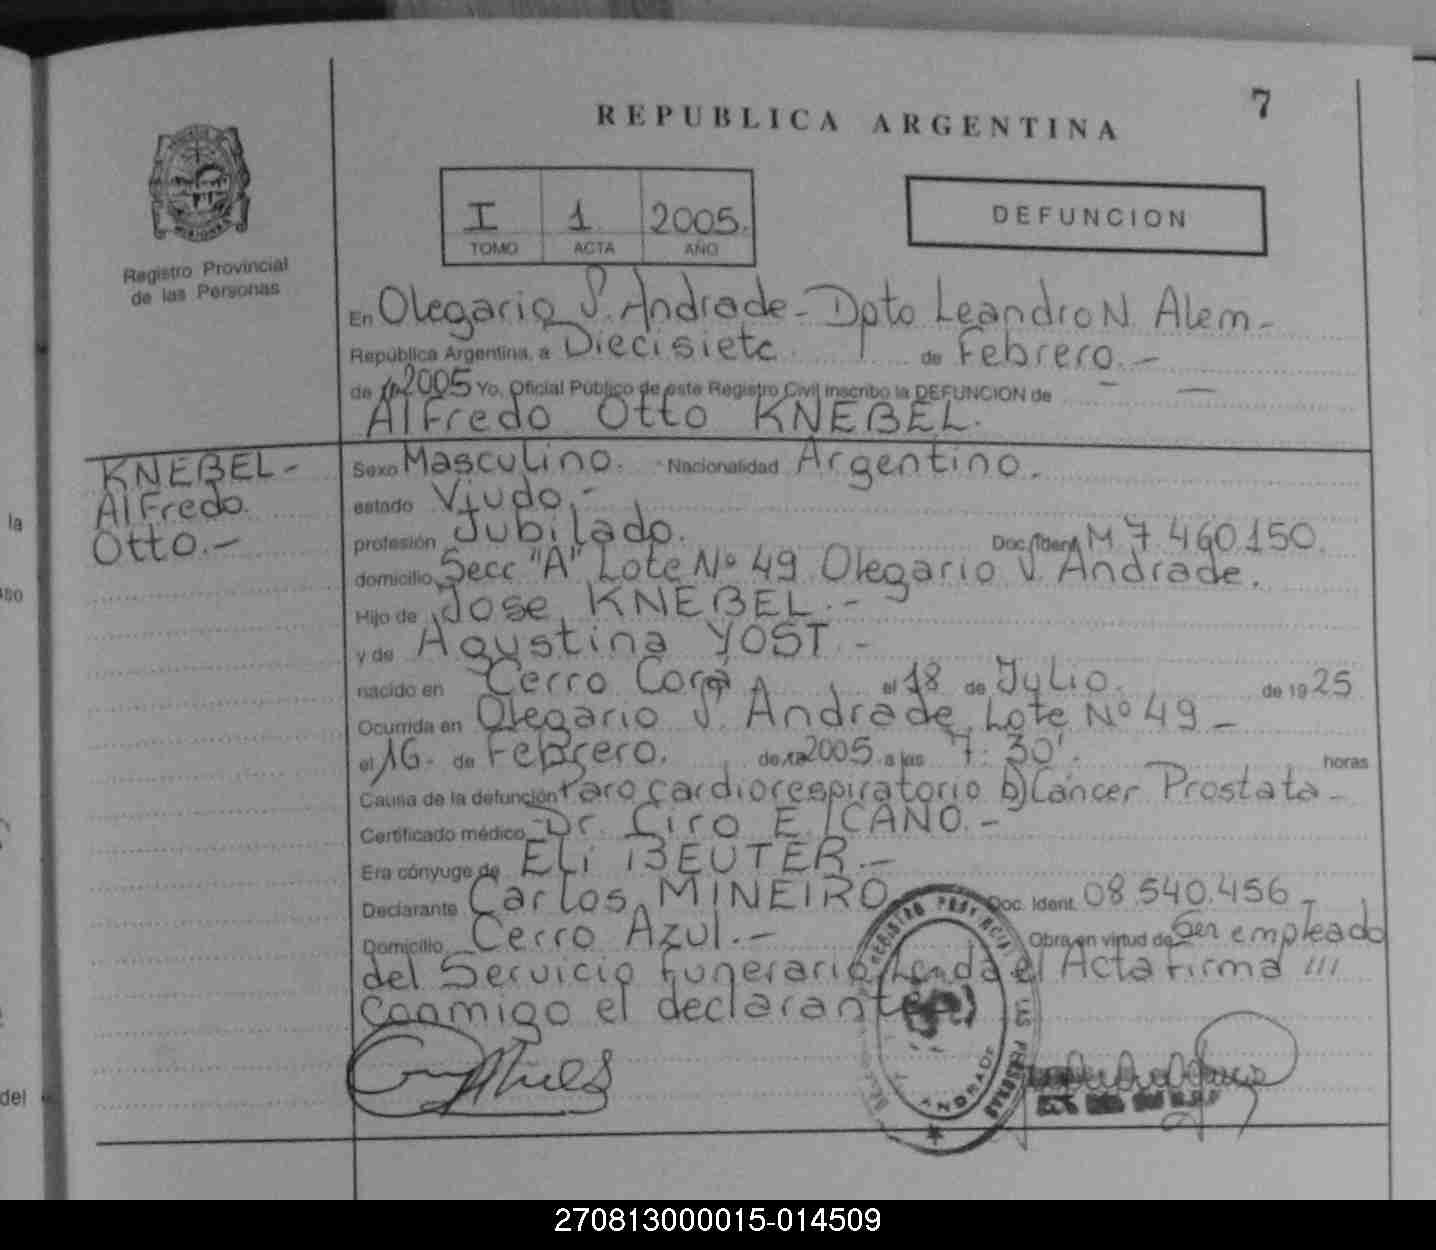 7
REPUBLICA ARGENTINA
MISIONES
Registro Provincial
de las Personas
I 1 2005.
TOMO ACTA AÑO
DEFUNCION
En Olegario V. Andrade - Dpto Leandro N. Alem -
República Argentina, a Diecisiete de Febrero. -
de 2005 Yo, Oficial Público de este Registro Civil inscribo la DEFUNCION de - -
Alfredo Otto KNEBEL.
KNEBEL -
Alfredo
Otto. -
Sexo Masculino. Nacionalidad Argentino.
estado Viudo. -
profesión Jubilado. Doc. Ident. M 7.460.150.
domicilio Secc "A" Lote Nº 49 Olegario V. Andrade.
Hijo de Jose KNEBEL. -
y de Agustina YOST -
nacido en Cerro Corá el 18 de Julio. de 1925
Ocurrida en Olegario V. Andrade Lote Nº 49 -
el 16 - de Febrero. de 2005 a las 7:30' horas
Causa de la defunción Paro cardiorespiratorio b) Cáncer Prostata -
Certificado médico Dr. Ciro E. CANO. -
Era cónyuge de Eli BEUTER. -
Declarante Carlos MINEIRO Doc. Ident. 08.540.456 -
Domicilio Cerro Azul. - Obra en virtud de Ser empleado
del Servicio Funerario. Leida el Acta Firma
conmigo el declarante
REGISTRO PROVINCIAL DE LAS PERSONAS
ANDRADE
la
del
270813000015-014509